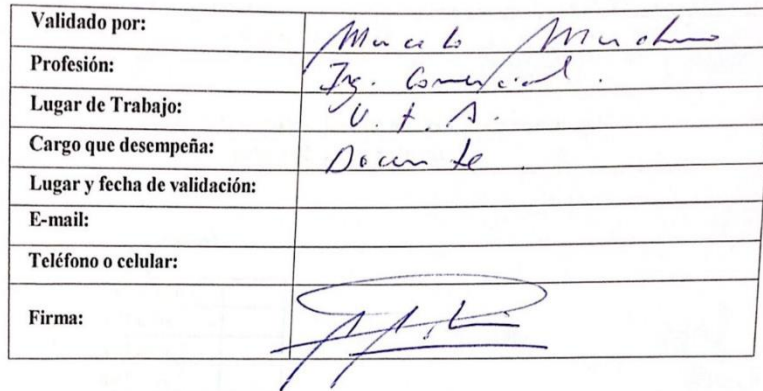 Validado por: Marcelo
Profesión: Ing. Comercial.
Lugar de Trabajo: U. T. A.
Cargo que desempeña: Docente.
Lugar y fecha de validación:
E-mail:
Teléfono o celular:
Firma: